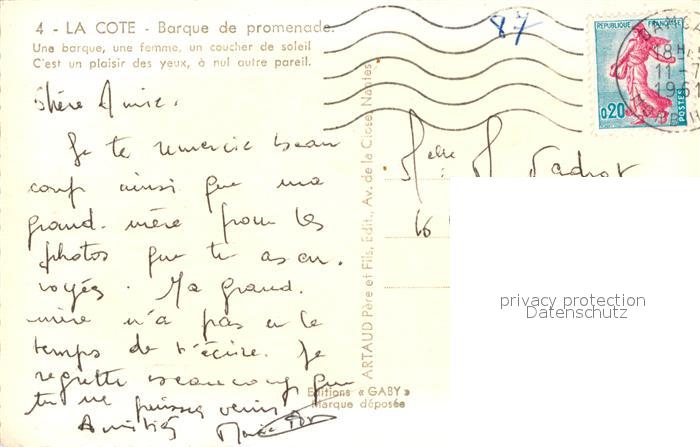 4 - LA COTE - Barque de promenade.
Une barque, une femme, un coucher de soleil
C'est un plaisir des yeux, à nul autre pareil.
87
RÉPUBLIQUE FRANÇAISE
0,20
POSTES
18H
11-7
1961
Chère Amie.
Je te remercie beau
coup ainsi que ma
grand. mère pour les
photos que tu as en.
voyées. Ma grand.
mère n'a pas eu le
temps de t'écrire. Je
regrette beaucoup que
tu ne puisses venir
Amitiés
Melle M.
16
ARTAUD Père et Fils, Edit., Av. de la Close, Nantes
Editions « GABY »
Marque déposée
privacy protection
Datenschutz